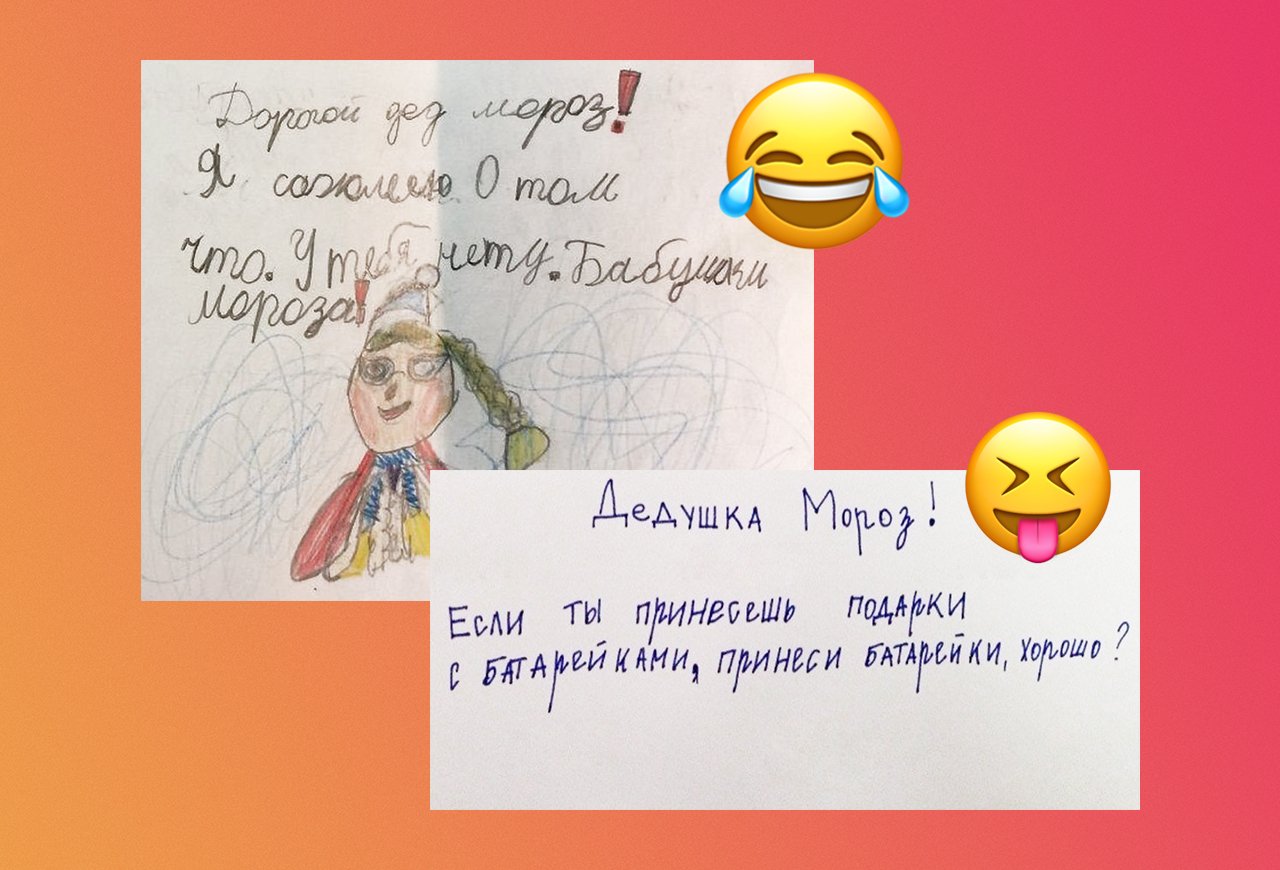 Дорогой дед мороз!
Я сожелею О том
что. У тебя нету. Бабушки
мороза!
Дедушка Мороз!
Если ты принесешь подарки
с батарейками, принеси батарейки, хорошо?